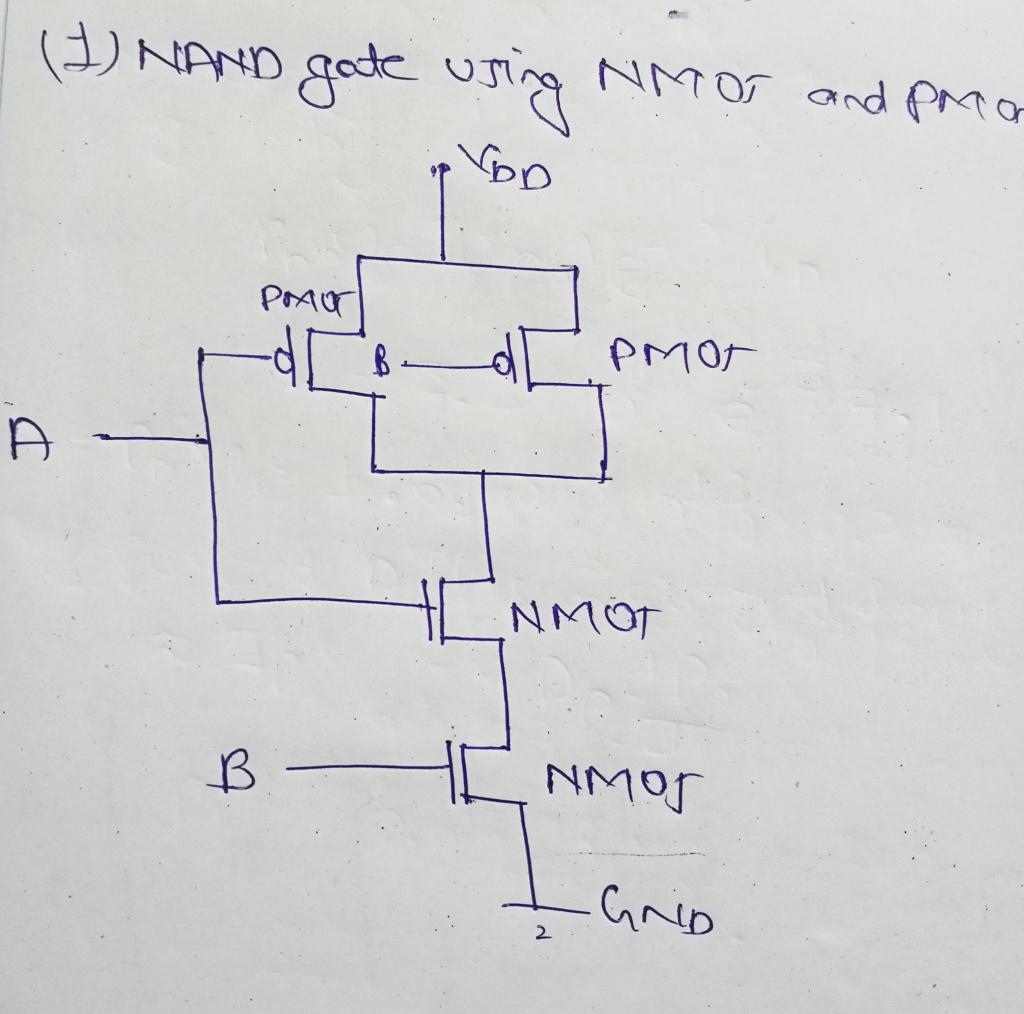 (1) NAND gate using NMOS and PMO
VDD
PMOS
B
PMOS
A
NMOS
B
NMOS
GND
2